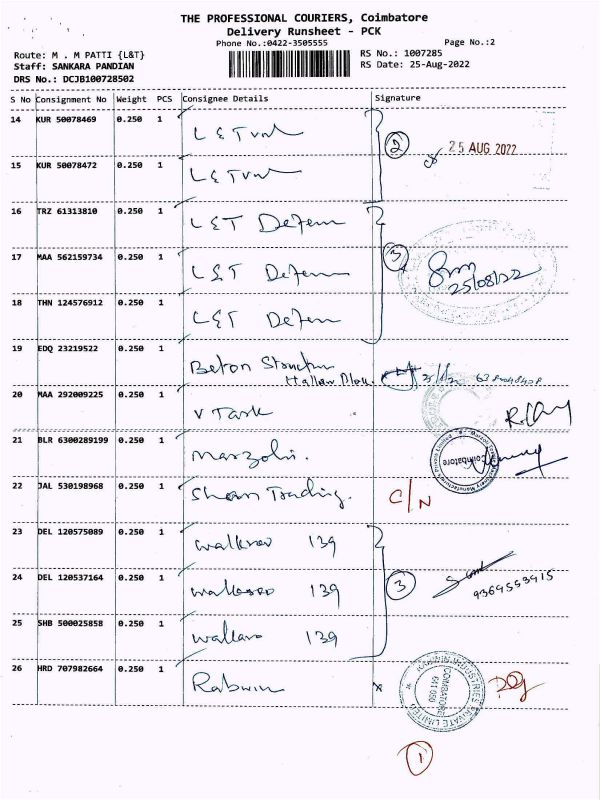 THE PROFESSIONAL COURIERS, Coimbatore
Delivery Runsheet - PCK
Phone No.:0422-3505555 Page No.:2
Route: M . M PATTI {L&T} RS No.: 1007285
Staff: SANKARA PANDIAN RS Date: 25-Aug-2022
DRS No.: DCJB100728502
S No Consignment No Weight PCS Consignee Details Signature
14 KUR 50078469 0.250 1 L&T
2 25 AUG 2022
15 KUR 50078472 0.250 1 L&T
16 TRZ 61313810 0.250 1 L&T Defen
17 MAA 562159734 0.250 1 L&T Defen
3 25/08/22
18 THN 124576912 0.250 1 L&T Defen
19 EDQ 23219522 0.250 1 Beton
20 MAA 292009225 0.250 1 V Task
21 BLR 6300289199 0.250 1 Marzoli.
Coimbatore
22 JAL 530198968 0.250 1 Trading. C/N
23 DEL 120575089 0.250 1 139
24 DEL 120537164 0.250 1 139
3 9364553915
25 SHB 500025858 0.250 1 139
26 HRD 707982664 0.250 1 Rabwin
INDUSTRIES PRIVATE LIMITED
COIMBATORE
1